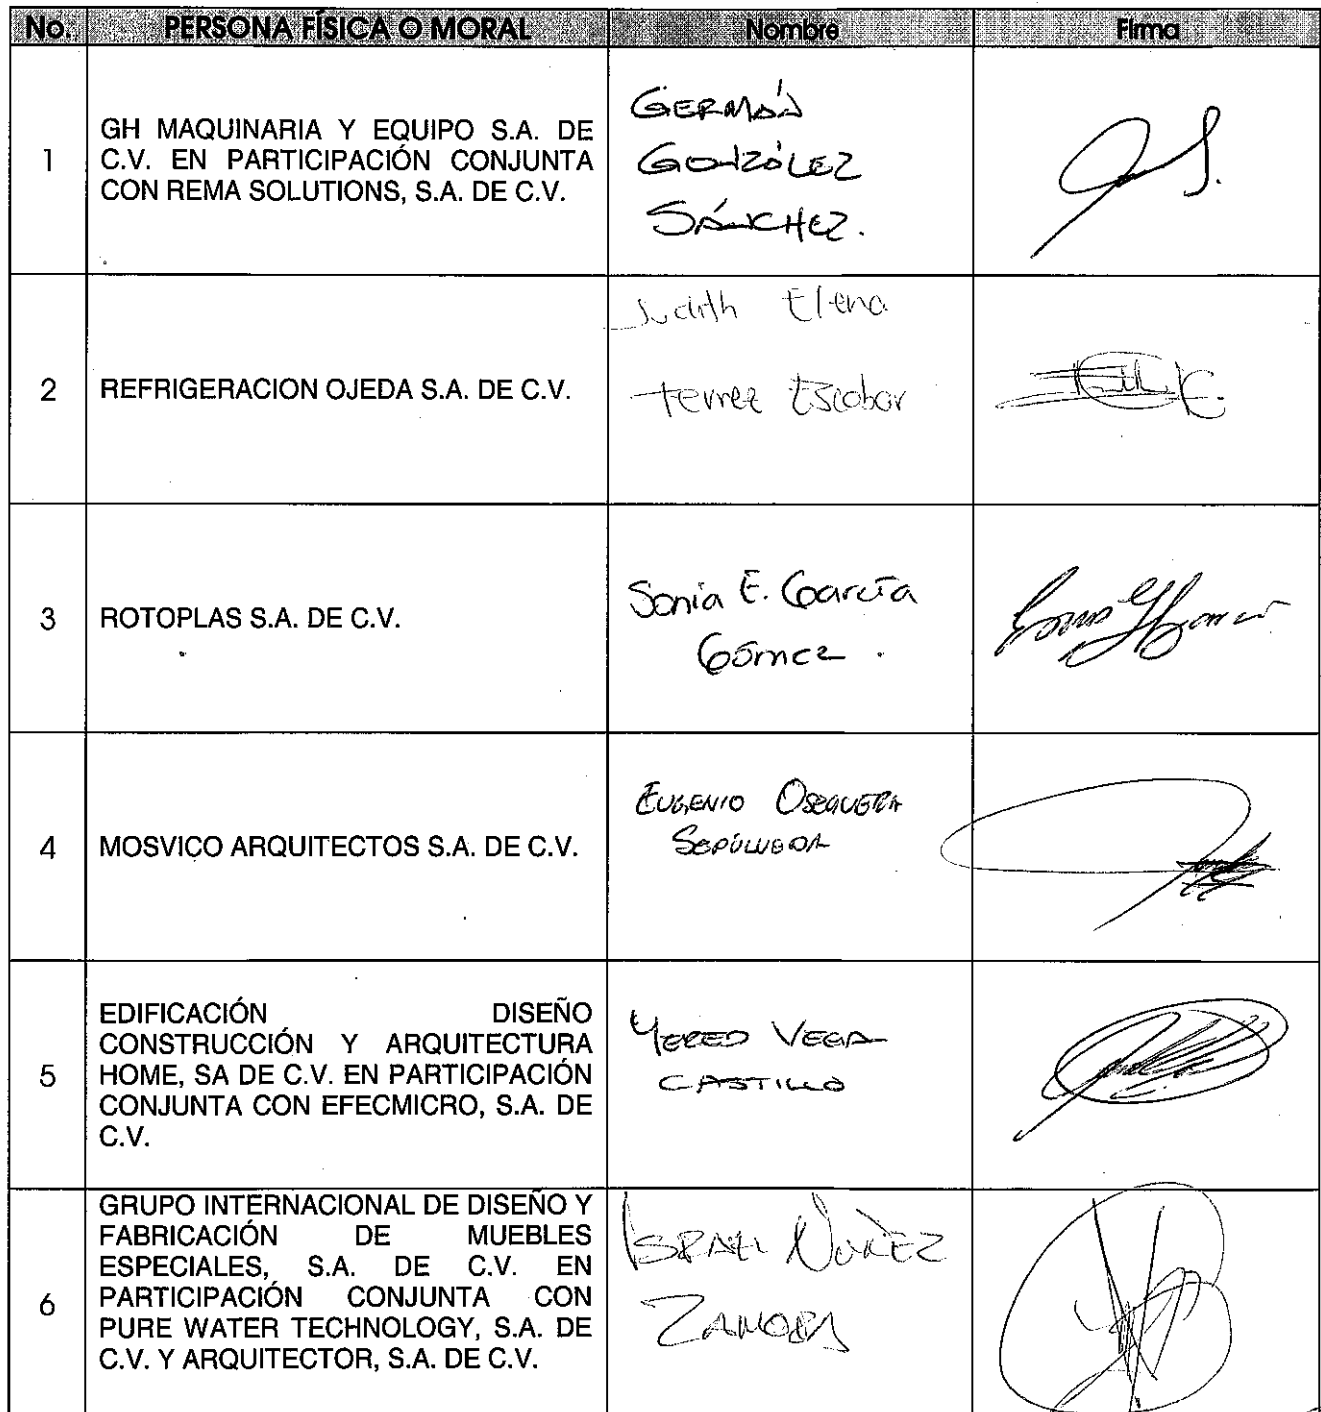 No. PERSONA FÍSICA O MORAL Nombre Firma
1
GH MAQUINARIA Y EQUIPO S.A. DE
C.V. EN PARTICIPACIÓN CONJUNTA
CON REMA SOLUTIONS, S.A. DE C.V.
GERMÁN
GONZÁLEZ
SÁNCHEZ.
2
REFRIGERACION OJEDA S.A. DE C.V.
Judith Elena
Escobar
3
ROTOPLAS S.A. DE C.V.
Sonia E. García
Gómez.
4
MOSVICO ARQUITECTOS S.A. DE C.V.
EUGENIO OSEGUERA
SEPÚLVEDA
5
EDIFICACIÓN DISEÑO
CONSTRUCCIÓN Y ARQUITECTURA
HOME, SA DE C.V. EN PARTICIPACIÓN
CONJUNTA CON EFECMICRO, S.A. DE
C.V.
YERED VEGA
CASTILLO
6
GRUPO INTERNACIONAL DE DISEÑO Y
FABRICACIÓN DE MUEBLES
ESPECIALES, S.A. DE C.V. EN
PARTICIPACIÓN CONJUNTA CON
PURE WATER TECHNOLOGY, S.A. DE
C.V. Y ARQUITECTOR, S.A. DE C.V.
ISRAEL NUÑEZ
ZAMORA